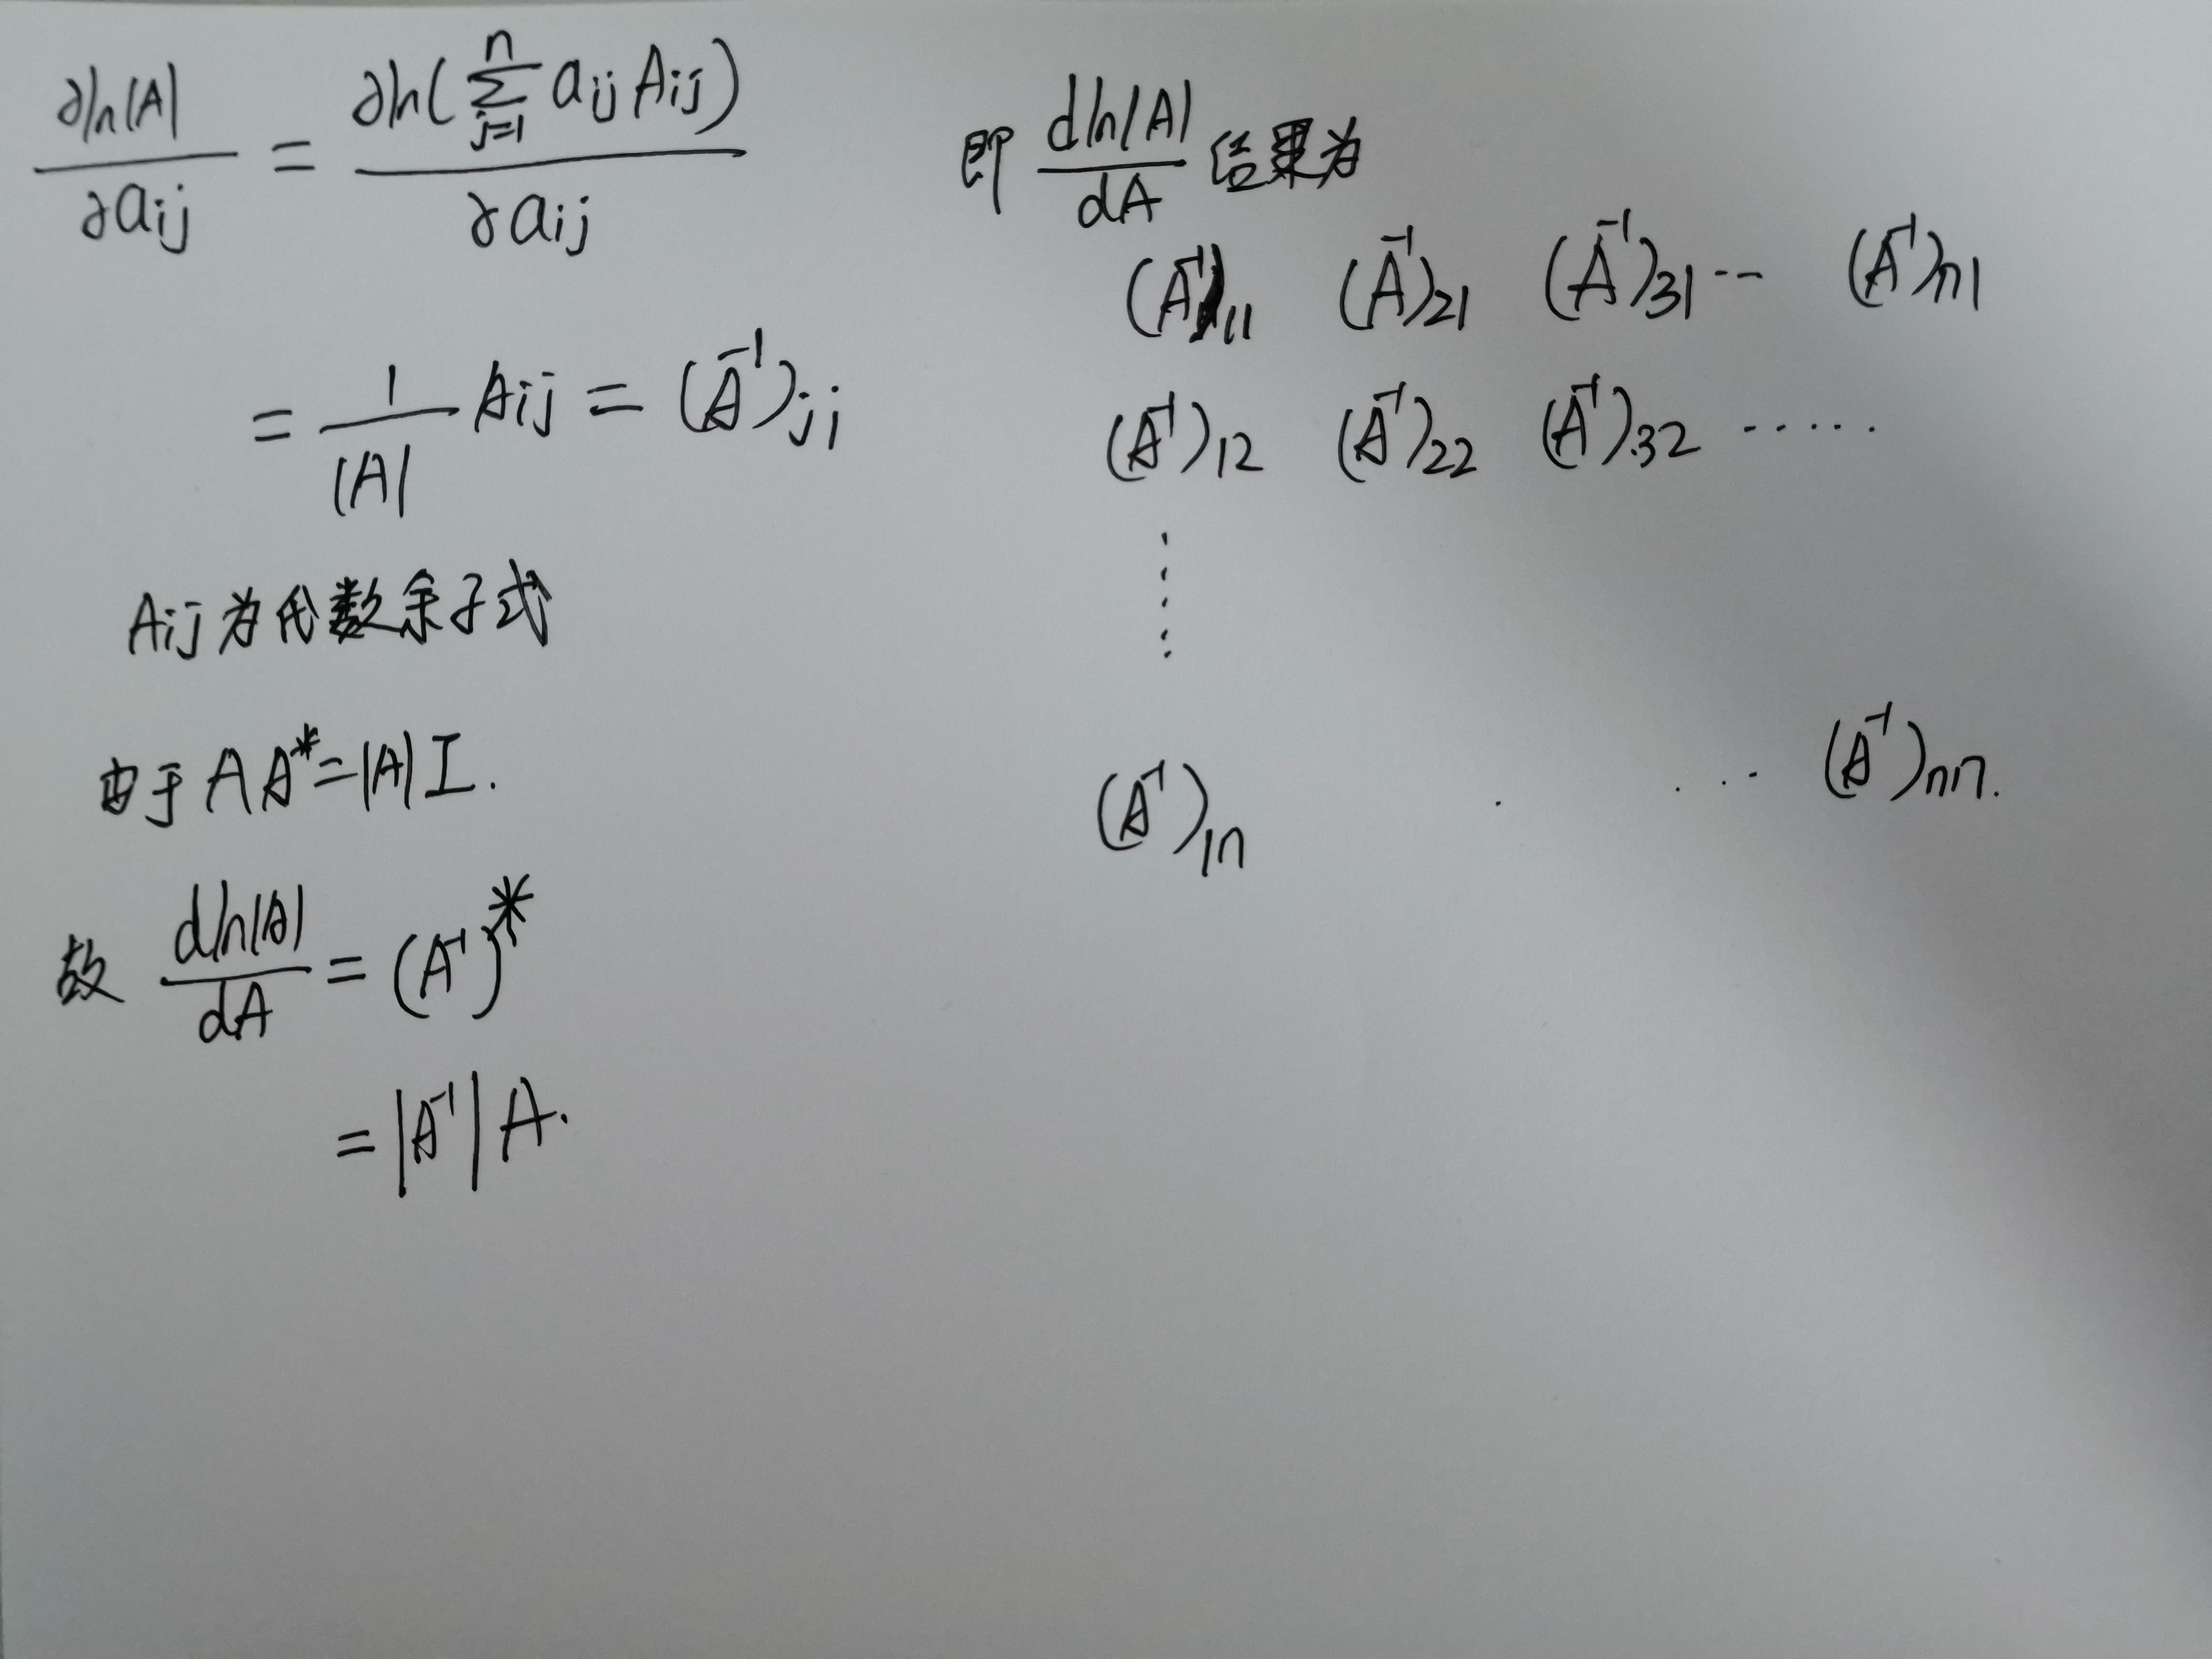 ∂ln|A| / ∂aij = ∂ln(∑_{j=1}^{n} aij Aij) / ∂aij
= 1/|A| Aij = (A⁻¹)ji
Aij为代数余子式
由于 AA* = |A| I.
故 dln|A| / dA = (A⁻¹)*
= |A⁻¹| A.
即 dln|A| / dA 结果为
(A⁻¹)11 (A⁻¹)21 (A⁻¹)31 ··· (A⁻¹)n1
(A⁻¹)12 (A⁻¹)22 (A⁻¹)32 ······
⋮
(A⁻¹)1n · ··· (A⁻¹)nn.